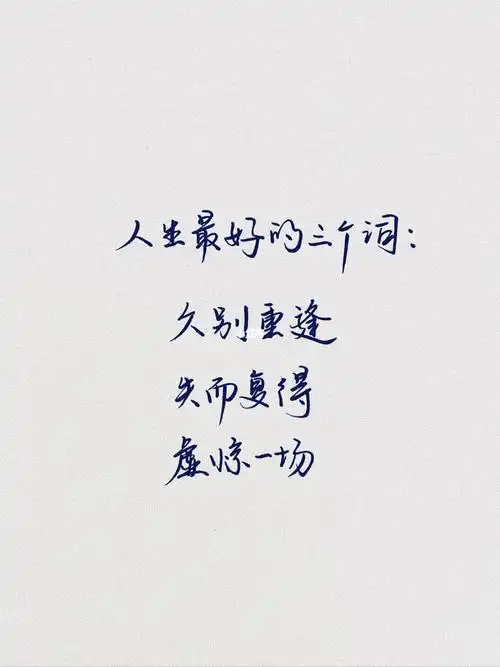 人生最好的三个词：
久别重逢
失而复得
虚惊一场